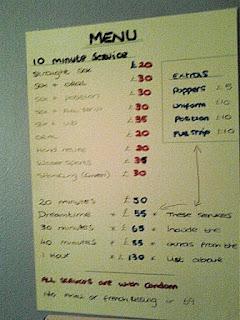 MENU
10 minute Service
Straight sex £20
Sex + oral £30
Sex + position £30
Sex + full strip £30
Sex + vib £35
Oral £20
Hand relief £20
Water sports £35
Spanking £30
Extras
Poppers £5
Uniform £10
Position £10
Full strip £10
20 minutes £50
Dreamtime * £55 * These services
30 minutes * £65 * include the
40 minutes * £85 * extras from the
1 Hour * £130 * list above
ALL SERVICES are with condom
No anal or french kissing or 69